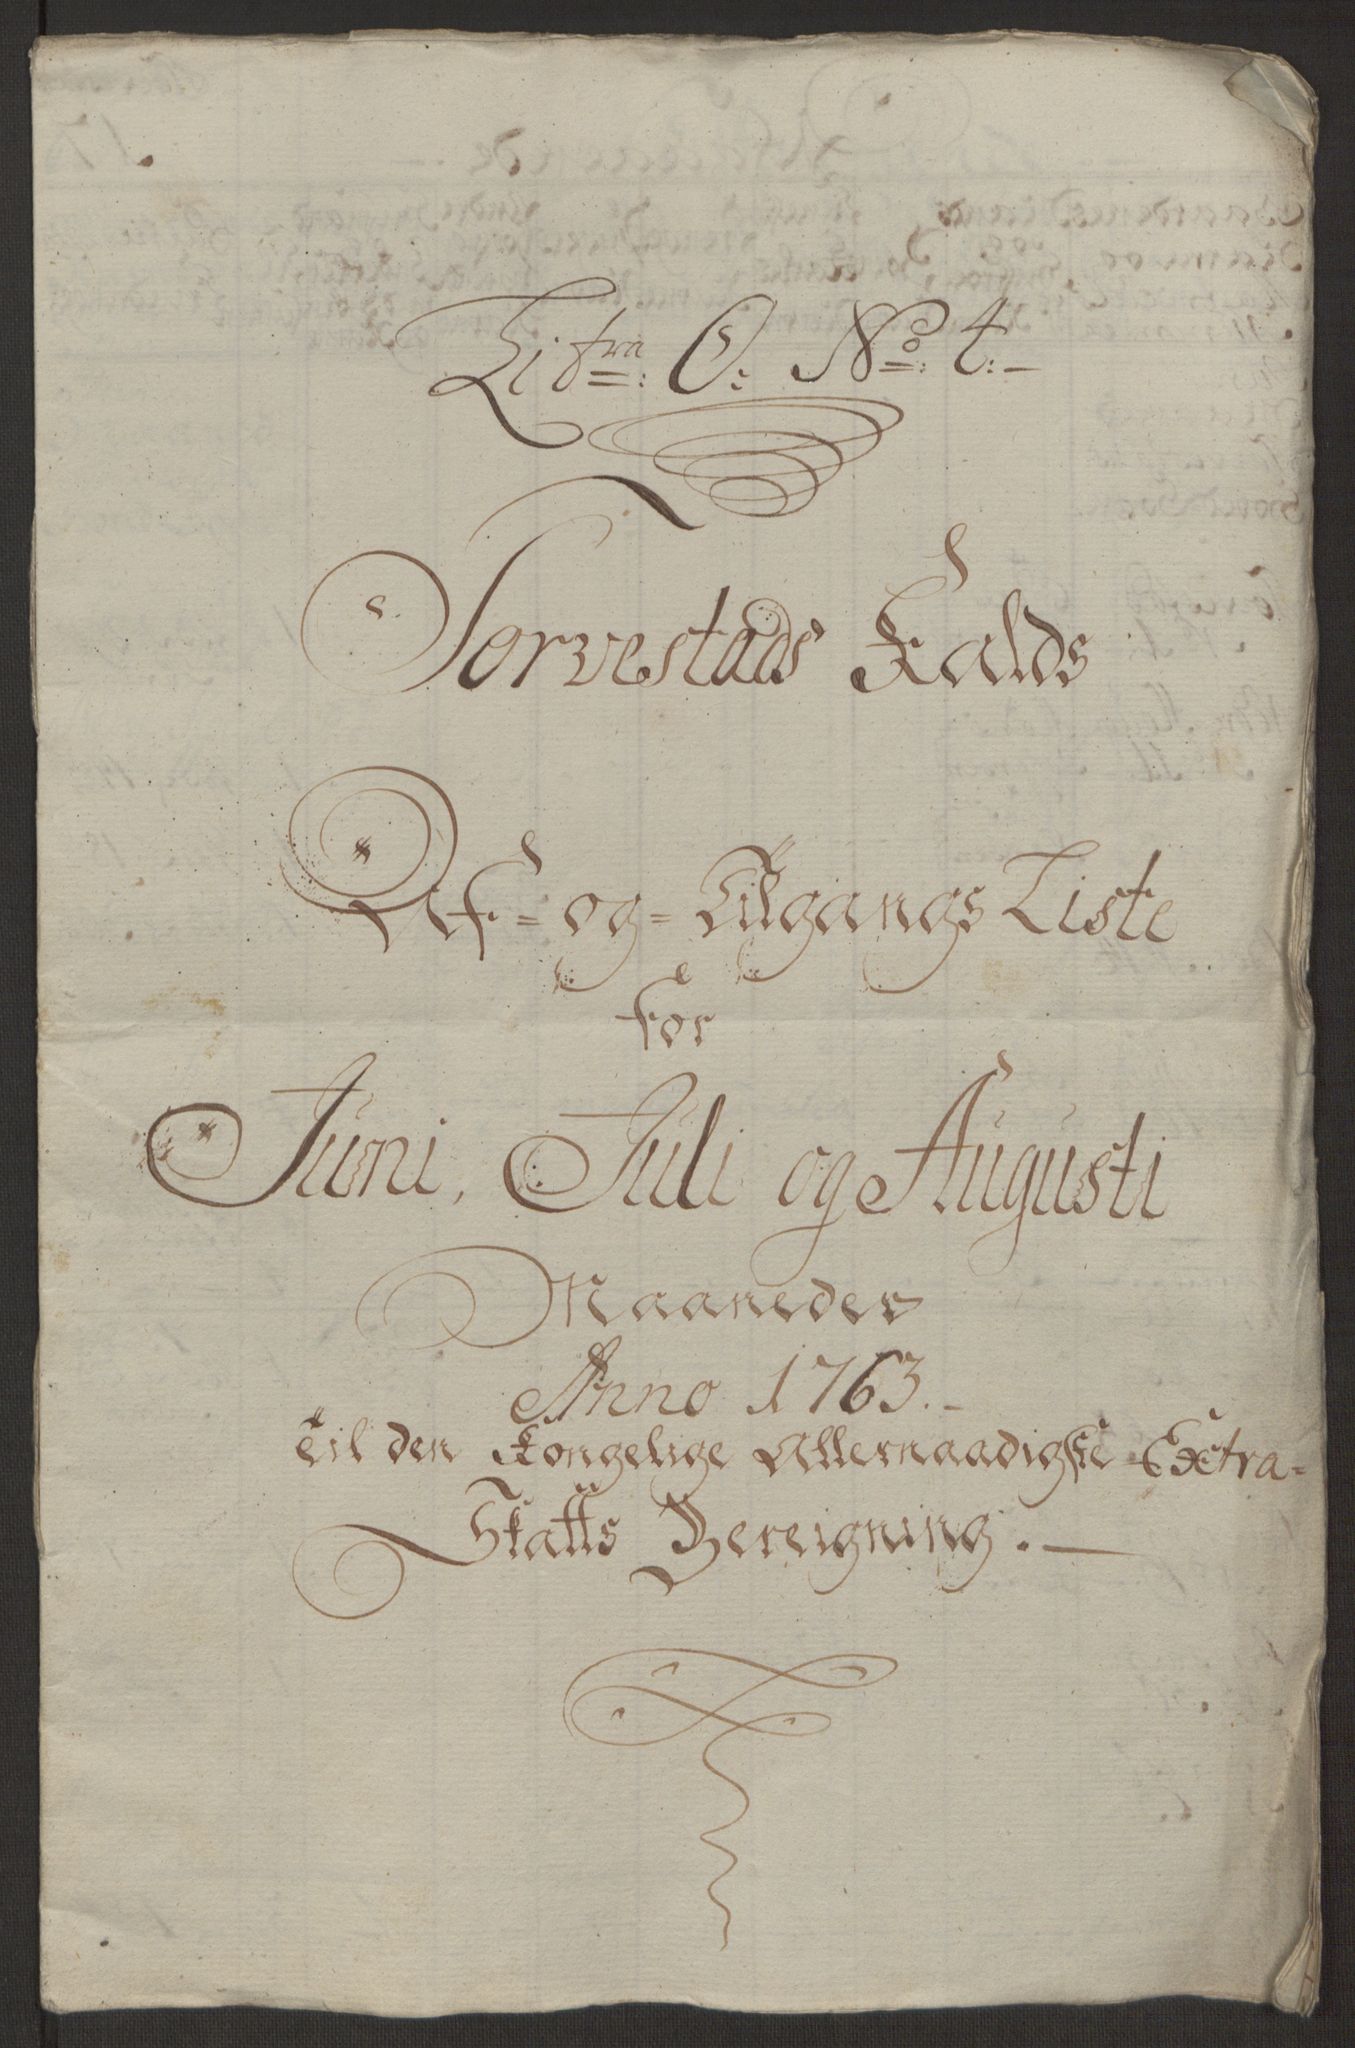 Litra: O: No: 4:
Torvestads Kalds
Af- og- Tilgangs Liste
for
Juni, Juli og Augusti
Maaneder
Anno 1763.
til den Kongelige Allernaadigste Extra-
Skatts Bereigning.